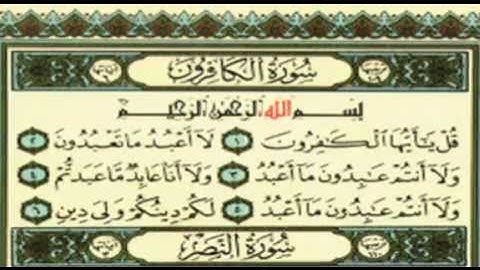 سُورَةُ الْكَافِرُونَ
بِسْمِ اللَّهِ الرَّحْمَٰنِ الرَّحِيمِ
قُلْ يَٰٓأَيُّهَا ٱلْكَٰفِرُونَ ١ لَآ أَعْبُدُ مَا تَعْبُدُونَ ٢
وَلَآ أَنتُمْ عَٰبِدُونَ مَآ أَعْبُدُ ٣ وَلَآ أَنَا۠ عَابِدٌ مَّا عَبَدتُّمْ ٤
وَلَآ أَنتُمْ عَٰبِدُونَ مَآ أَعْبُدُ ٥ لَكُمْ دِينُكُمْ وَلِىَ دِينِ ٦
سُورَةُ النَّصْرِ